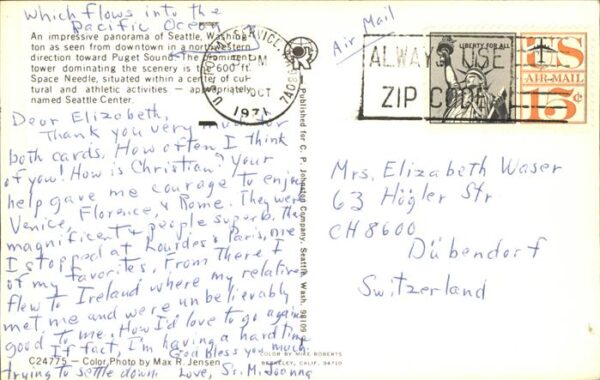 Which flows into the
Pacific Ocean
An impressive panorama of Seattle, Washing-
ton as seen from downtown in a northwestern
direction toward Puget Sound. The prominent
tower dominating the scenery is the 600 ft.
Space Needle, situated within a center of cul-
tural and athletic activities — appropriately
named Seattle Center.
Dear Elizabeth,
Thank you very much for
both cards. How often I think
of you! How is Christian? Your
help gave me courage to enjoy
Venice, Florence, & Rome. They were
magnificent & people superb. The
I stopped at Lourdes & Paris, one
of my favorites. From there I
flew to Ireland where my relative
met me and were unbelievably
good to me. How I'd love to go again
If fact, I'm having a hard time
God bless you much
trying to settle down. Love, Sr. M. Joanna
C24775 — Color Photo by Max R. Jensen
COLOR BY MIKE ROBERTS
BERKELEY, CALIF. 94710
Published for C. P. Johnston Company, Seattle, Wash. 98109
PM
OCT
1971
Air Mail
ALWAYS USE
ZIP CODE
LIBERTY FOR ALL
US
AIR MAIL
15¢
Mrs. Elizabeth Waser
63 Högler Str
CH 8600
Dübendorf
Switzerland